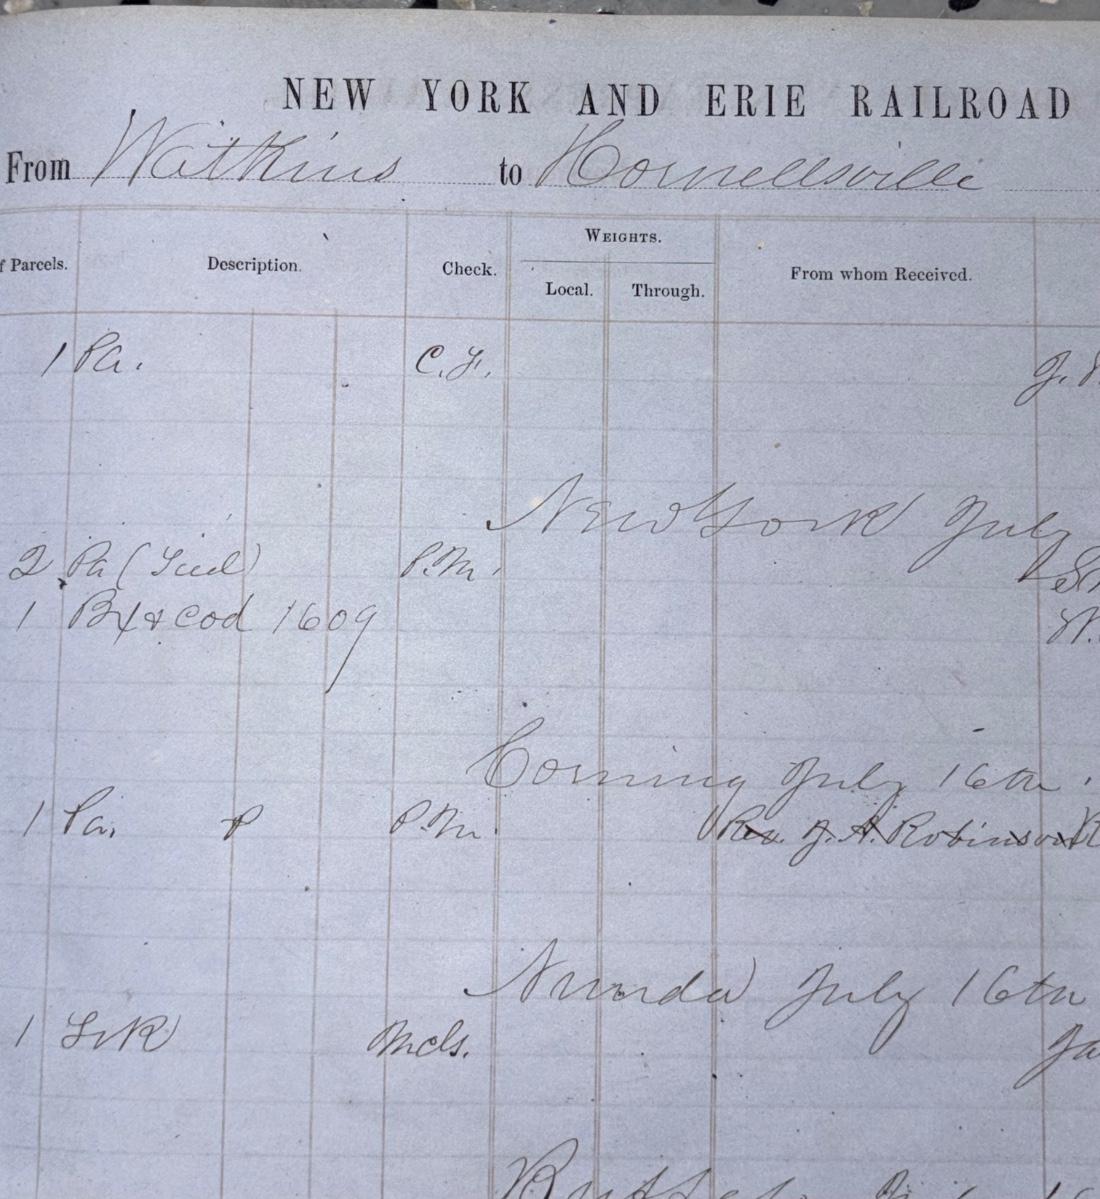 NEW YORK AND ERIE RAILROAD
From Watkins to Hornellsville
f Parcels. Description. Check. WEIGHTS. From whom Received.
Local. Through.
1 Pa. C.F. J.
New York July
2 Pa ( ) P.M.
1 Bx & Cod 1609 W.
Corning July 16th
1 Pa. P P.M. Rev. J. A. Robinson
Nunda July 16th
1 Mcls. Ja